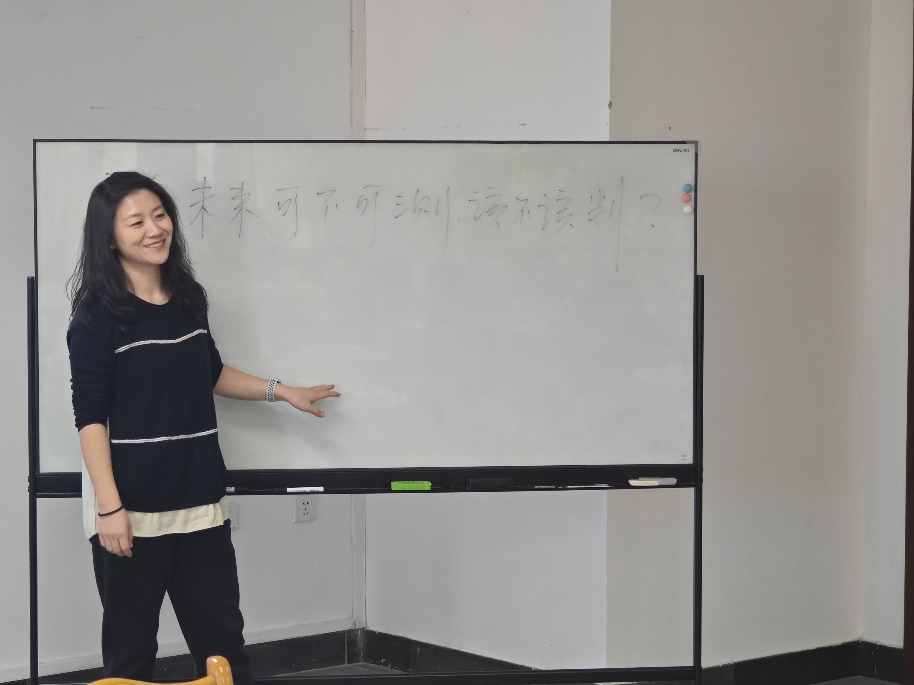 未来可不可测,该不该判?